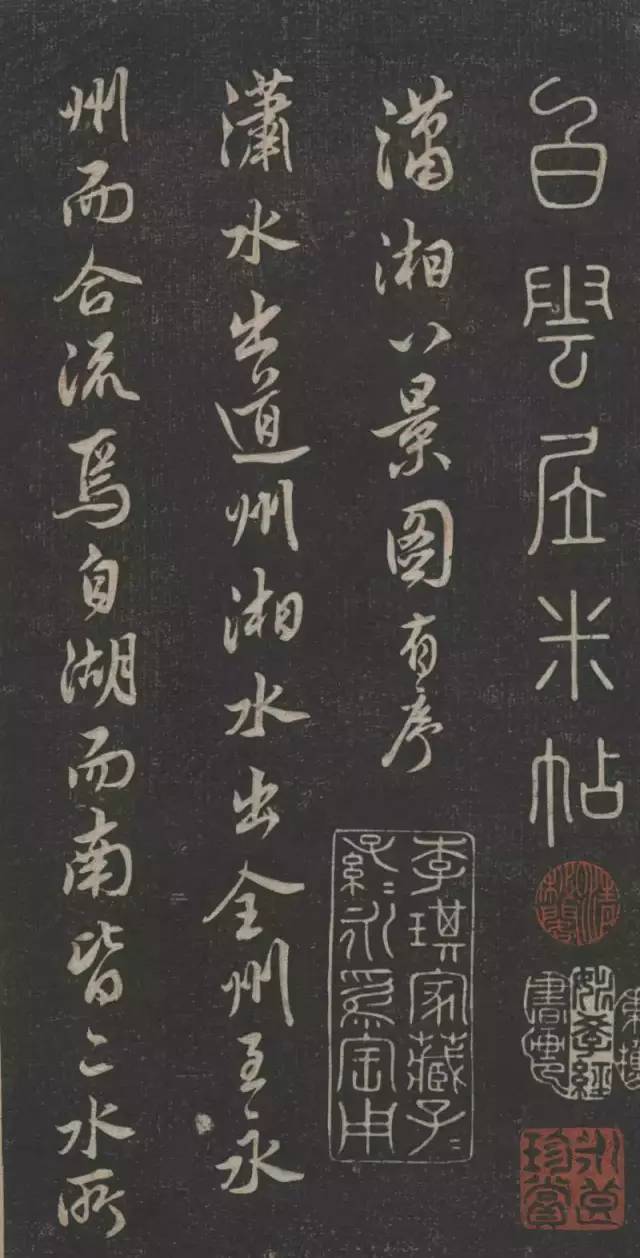 白雲居米帖
瀟湘八景图有序
瀟水出道州湘水出全州至永
州而合流焉自湖而南皆二水所
李琪家藏子〻
孫〻永為宝用